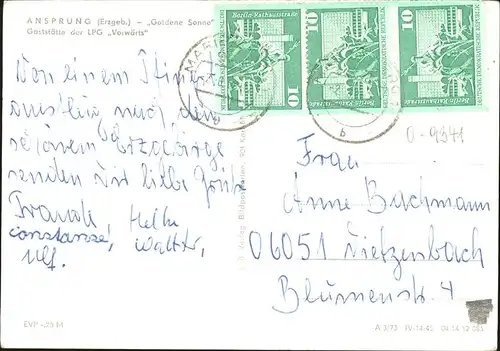 ANSPRUNG (Erzgeb.) – „Goldene Sonne"
Gaststätte der LPG „Vorwärts"
Von einem
ausflug nach dem
schönem Erzgebirge
senden wir liebe Grüße
Frank Heike
Constanze, Walter,
Ulf.
EVP
Berlin-Rathausstraße
10
DEUTSCHE DEMOKRATISCHE REPUBLIK
Berlin-Rathausstraße
10
DEUTSCHE DEMOKRATISCHE REPUBLIK
Berlin-Rathausstraße
10
DEUTSCHE DEMOKRATISCHE REPUBLIK
b
0-9341
Frau
Anne Buchmann
06051 Dietzenbach
Blumenstr. 4
A 3/73 IV-14-45